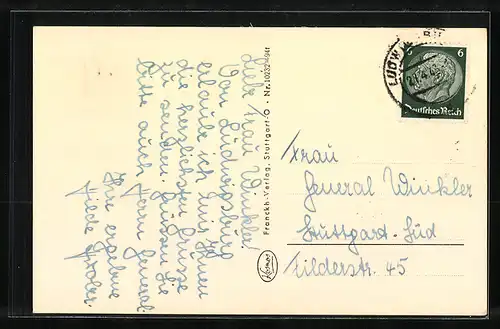 Liebe Frau Winkler!
Von Ludwigsburg
erlaube ich mir Ihnen
die herzlichsten Grüsse
zu senden. Grüssen Sie
bitte auch Herrn General.
Ihre ergebene
Hilde
Franckh-Verlag, Stuttgart-O · Nr.
Kosmos
LUDW
6 6
Deutsches Reich
Frau
General Winkler
Stuttgart-Süd
Filderstr. 45